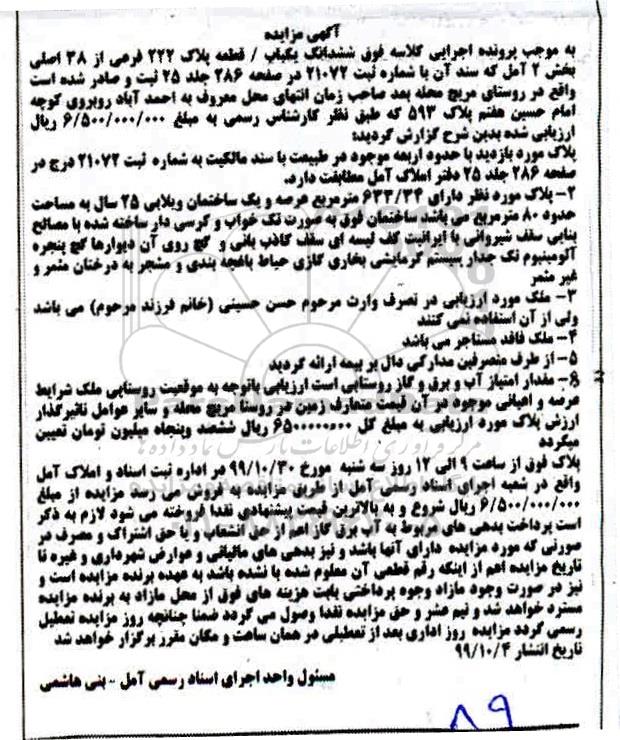 آگهی مزایده
به موجب پرونده اجرایی کلاسه فوق ششدانگ یکباب / قطعه پلاک ۲۲۲ فرعی از ۳۸ اصلی
بخش ۲ آمل که سند آن با شماره ثبت ۲۱۰۷۲ در صفحه ۲۸۶ جلد ۲۵ ثبت و صادر شده است
واقع در روستای مریج محله بعد صاحب زمان انتهای محل معروف به احمد آباد روبروی کوچه
امام حسین هفتم پلاک ۵۹۳ که طبق نظر کارشناس رسمی به مبلغ ۶/۵۰۰/۰۰۰/۰۰۰ ریال
ارزیابی شده بدین شرح گزارش گردید؛
پلاک مورد بازدید با حدود اربعه موجود در طبیعت با سند مالکیت به شماره ثبت ۲۱۰۷۲ درج در
صفحه ۲۸۶ جلد ۲۵ دفتر املاک آمل مطابقت دارد.
۲- پلاک مورد نظر دارای ۶۳۳/۳۴ مترمربع عرصه و یک ساختمان ویلایی ۲۵ سال به مساحت
حدود ۸۰ مترمربع می باشد ساختمان فوق به صورت تک خواب و کرسی دار ساخته شده با مصالح
بنایی سقف شیروانی با ایرانیت کف لیسه ای سقف کاذب بانی و گچ روی آن دیوارها گچ پنجره
آلومینیوم تک جدار سیستم گرمایشی بخاری گازی حیاط باغچه بندی و مشجر به درختان مثمر و
غیر مثمر
۳- ملک مورد ارزیابی در تصرف وارث مرحوم حسن حسینی (خانم فرزند مرحوم) می باشد
ولی از آن استفاده نمی کنند
۴- ملک فاقد مستاجر می باشد
۵- از طرف متصرفین مدارکی دال بر بیمه ارائه گردید
۶- مقدار امتیاز آب و برق و گاز روستایی است ارزیابی باتوجه به موقعیت روستایی ملک شرایط
عرصه و اعیانی موجود در آن قیمت متعارف زمین در روستا مریج محله و سایر عوامل تاثیرگذار
ارزش پلاک مورد ارزیابی به مبلغ کل ۶۵۰۰۰۰۰۰۰۰ ریال ششصد وپنجاه میلیون تومان تعیین
میگردد
پلاک فوق از ساعت ۹ الی ۱۲ روز سه شنبه مورخ ۹۹/۱۰/۳۰ در اداره ثبت اسناد و املاک آمل
واقع در شعبه اجرای اسناد رسمی آمل از طریق مزایده به فروش می رسد مزایده از مبلغ
۶/۵۰۰/۰۰۰/۰۰۰ ریال شروع و به بالاترین قیمت پیشنهادی نقدا فروخته می شود لازم به ذکر
است پرداخت بدهی های مربوط به آب برق گاز اعم از حق انشعاب و یا حق اشتراک و مصرف در
صورتی که مورد مزایده دارای آنها باشد و نیز بدهی های مالیاتی و عوارض شهرداری و غیره تا
تاریخ مزایده اعم از اینکه رقم قطعی آن معلوم شده یا نشده باشد به عهده برنده مزایده است و
نیز در صورت وجود مازاد وجوه پرداختی بابت هزینه های فوق از محل مازاد به برنده مزایده
مسترد خواهد شد و نیم عشر و حق مزایده نقدا وصول می گردد ضمنا چنانچه روز مزایده تعطیل
رسمی گردد مزایده روز اداری بعد از تعطیلی در همان ساعت و مکان مقرر برگزار خواهد شد
تاریخ انتشار ۹۹/۱۰/۴
مسئول واحد اجرای اسناد رسمی آمل - بنی هاشمی
۸۹